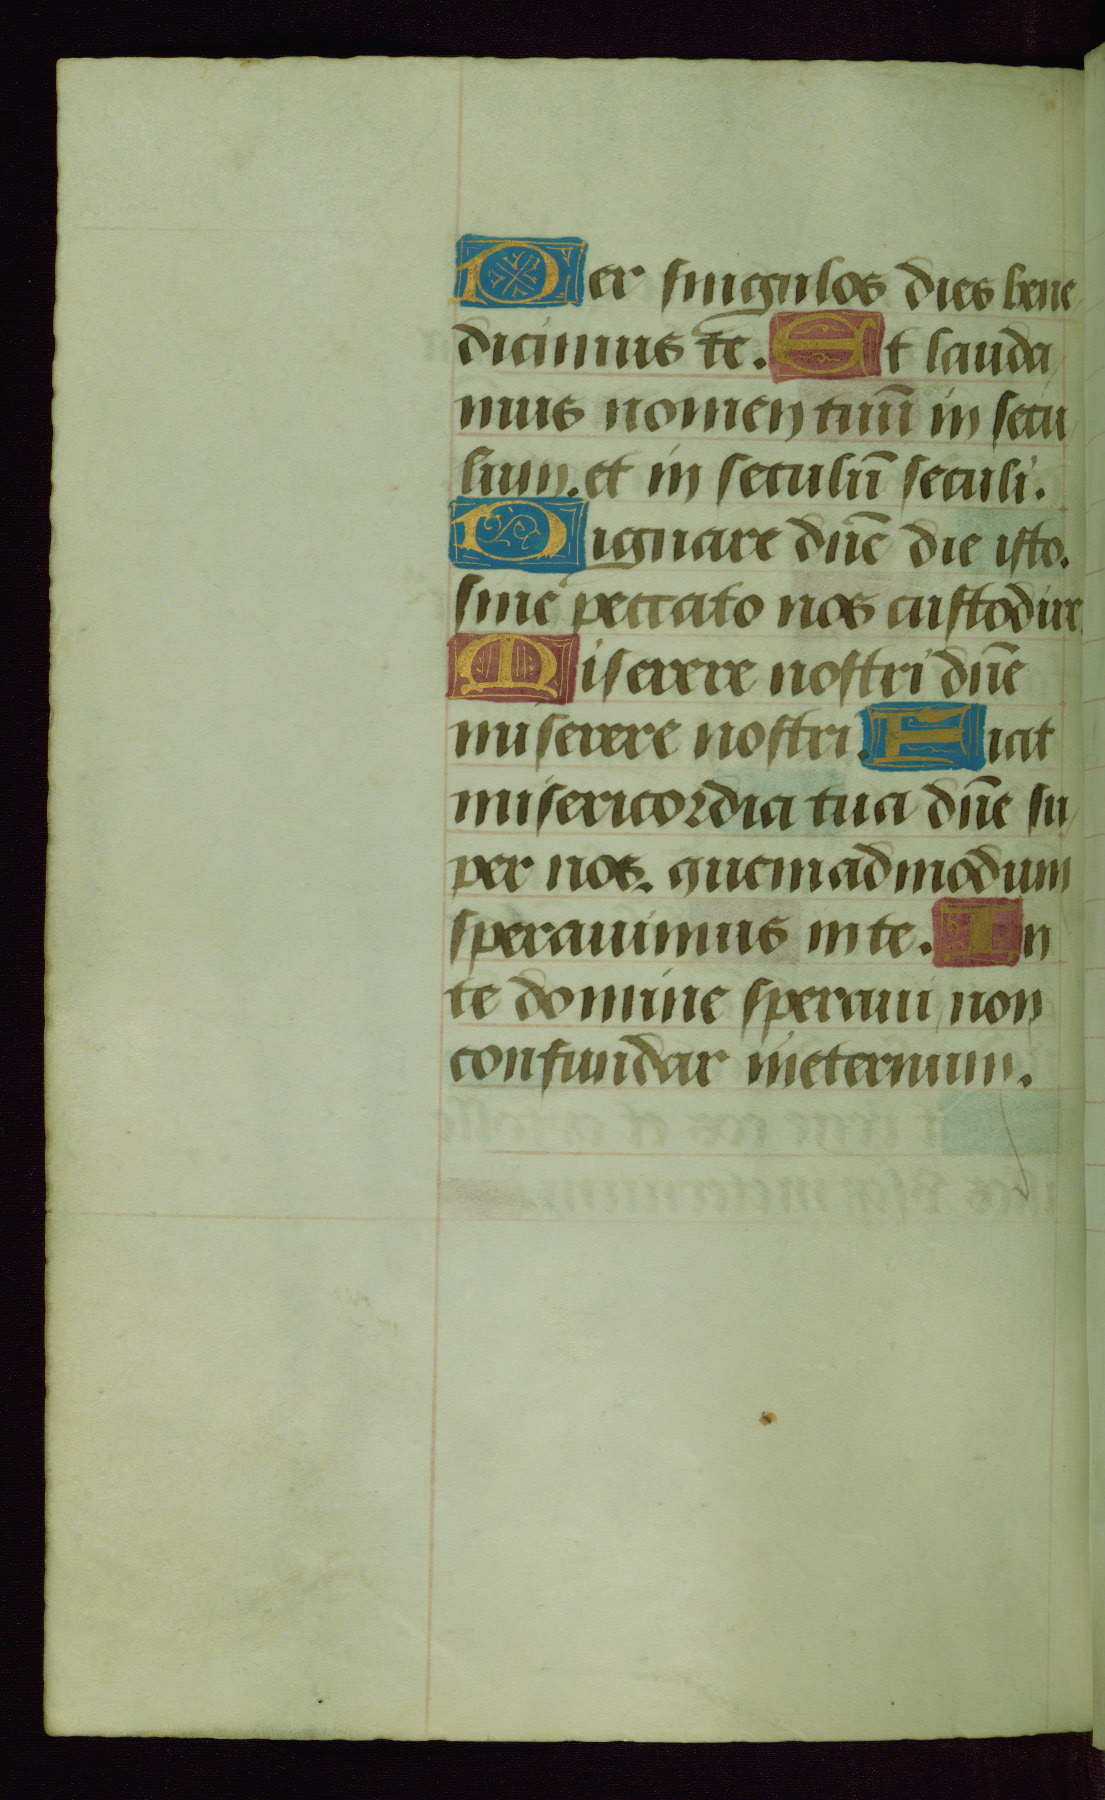 Per singulos dies bene
dicimus te. Et lauda
mus nomen tuū in secu
lum. et in seculū seculi.
Dignare dn̄e die isto.
sine peccato nos custodire.
Miserere nostri dn̄e
miserere nostri. Fiat
misericordia tua dn̄e su
per nos. quemadmodum
sperauimus in te. In
te domine speraui non
confundar ineternum.